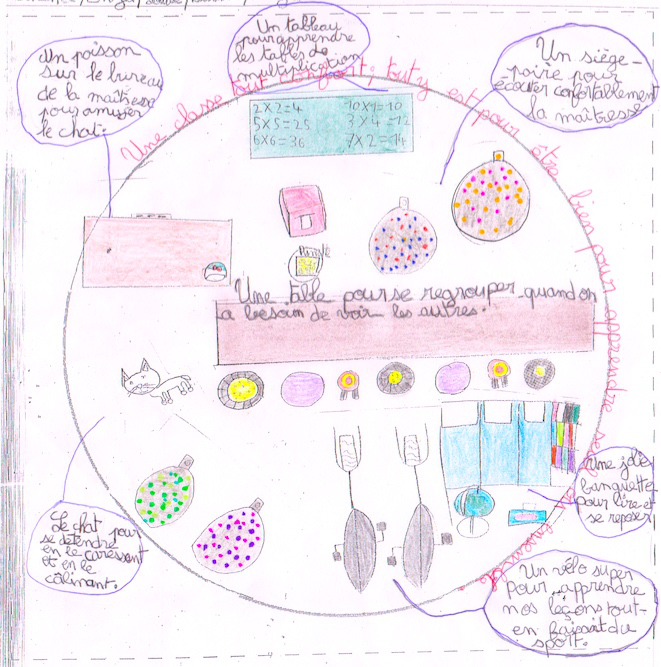 Un poisson
sur le bureau
de la maîtresse
pour amuser
le chat.
Un tableau
pour apprendre
les tables de
multiplication
Un siège-
poire pour
écouter confortablement
la maîtresse
Une classe tout confort; tout y est pour être bien pour apprendre
2x2=4
5x5=25
6x6=36
10x1=10
3x4=12
7x2=14
Une table pour se regrouper quand on
a besoin de voir les autres.
Le chat pour
se détendre
en le caressant
et en le
câlinant.
Une jolie
banquette
pour lire et
se reposer
Un vélo super
pour apprendre
nos leçons tout-
en faisant du
sport.